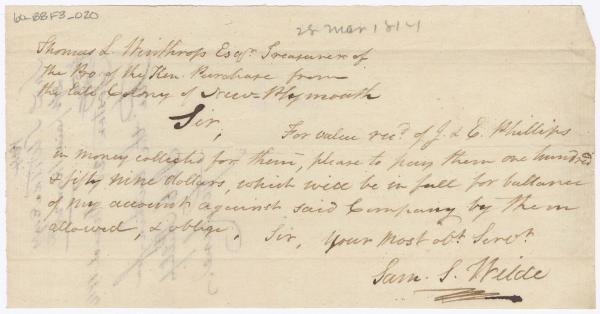 6a-BBF3-020
28 Mar 1814
Thomas L Winthrop Esqr. Treasurer of
the Pro. of the Ken. Purchase from
the late Colony of New-Plymouth
Sir,
For value recd. of J. & E. Phillips
in money collected for them, please to pay them one hundred
& fifty nine dollars, which will be in full for ballance
of my account against said Company by them
allowed, & oblige, Sir, your most obt. Servt.
Sam. S. Wilde